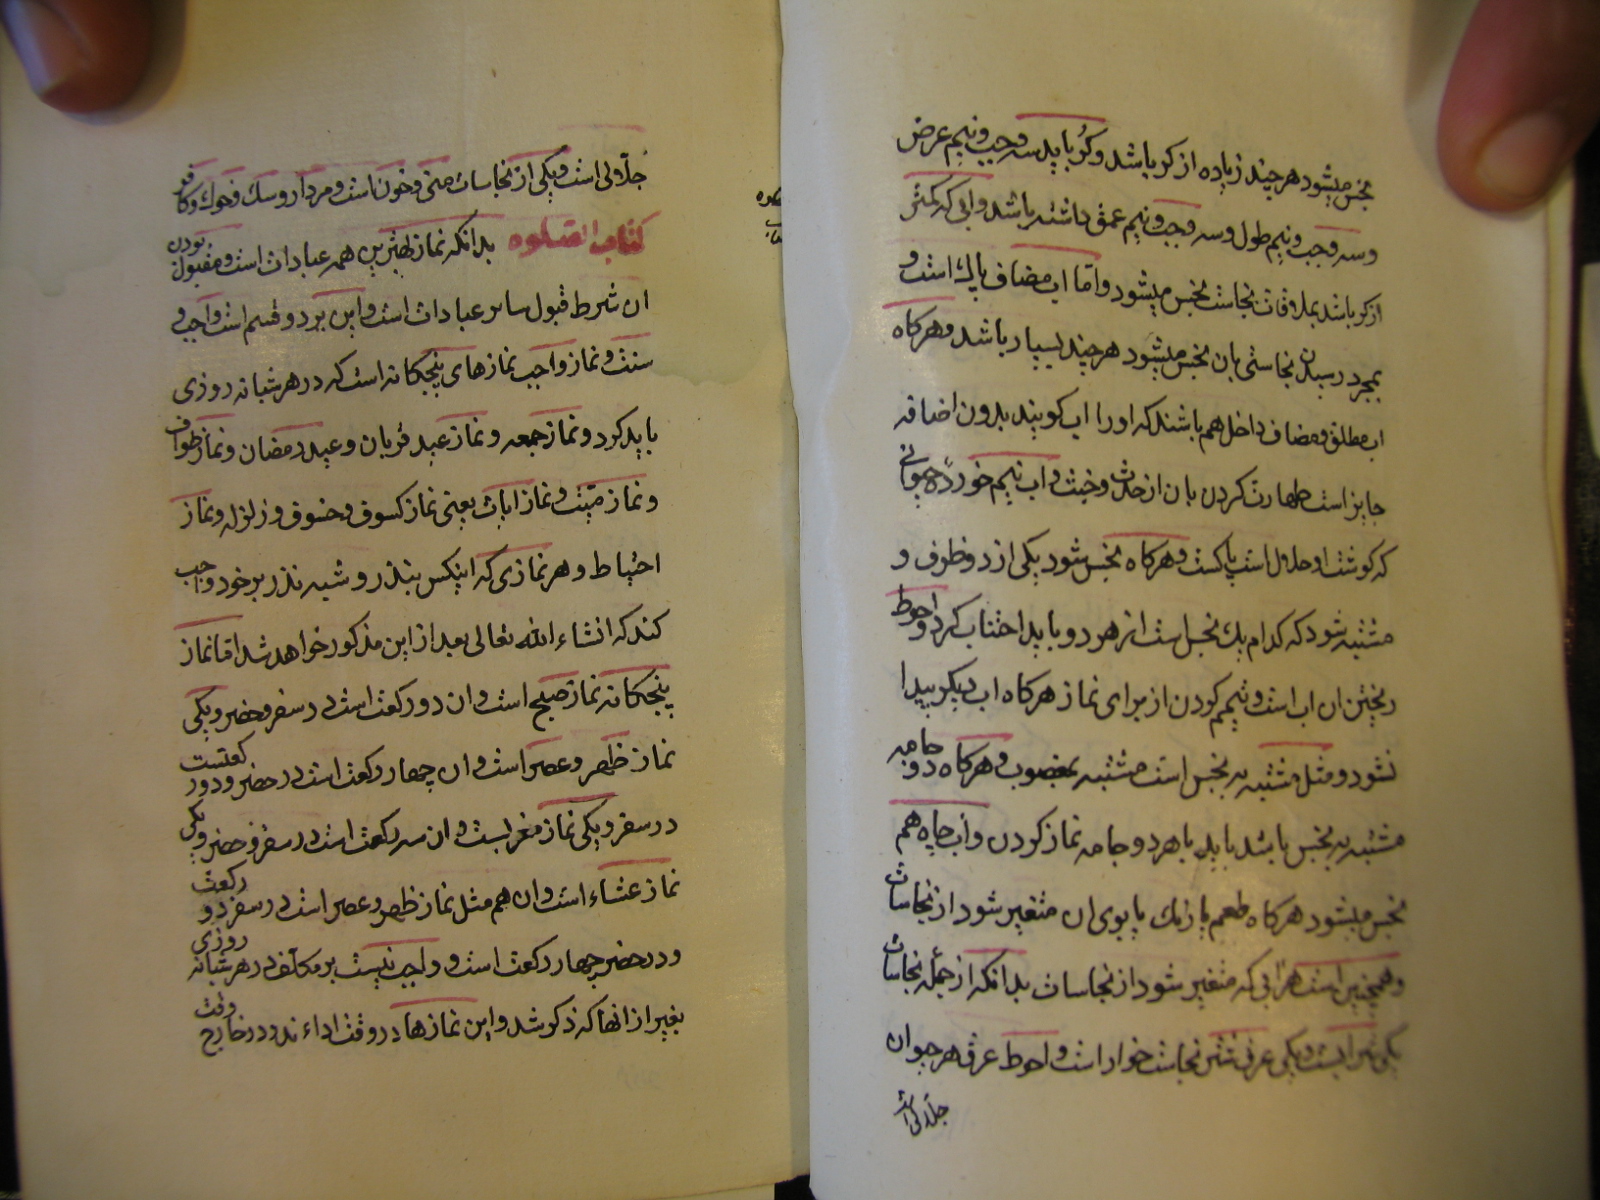 نجس میشود هر چند زیاده از کر باشد و کر باید سه وجب و نیم عرض
و سه وجب و نیم طول و سه وجب و نیم عمق داشته باشد و ابی که کمتر
از کر باشد بملاقات نجاست نجس میشود و اما اب مضاف پاک است و
بمجرد رسیدن نجاستی بان نجس میشود هر چند بسیار باشد و هرکاه
اب مطلق و مضاف داخل هم باشند که او را اب کویند بدون اضافه
جایز است طهارت کردن بان از حدث و خبث و اب نیم خورده حیوانی
که کوشت او حلال است پاکست و هرکاه نجس شود یکی از دو ظروف و
مشتبه شود که کدام یک نجس است از هر دو باید اجتناب کرد و احوط
ریختن ان اب است و تیمم کردن از برای نماز هرکاه اب دیکر پیدا
نشود و مثل مشتبه به نجس است مشتبه بمغصوب و هرکاه دو جامه
مشتبه به نجس باشد باید با هر دو جامه نماز کردن و اب چاه هم
نجس میشود هرکاه طعم یا رنک یا بوی ان متغیر شود از نجاسات
و همچنین است هر ابی که متغیر شود از نجاسات بدانکه از جمله نجاسات
یکی شرابست و یکی عرق شتر نجاست خوار است و احوط عرق هر حیوان
جلّالی است
جلّالی است و یکی از نجاسات منی و خون است و مردار و سک و خوک و کافر
کتاب الصلوه بدانکه نماز بهترین همه عبادات است و مقبول بودن
ان شرط قبول سایر عبادات است و این بر دو قسم است واجب و
سنت و نماز واجب نمازهای پنجکانه است که در هر شبانه روزی
باید کرد و نماز جمعه و نماز عید قربان و عید رمضان و نماز طواف
و نماز میّت و نماز ایات یعنی نماز کسوف و خسوف و زلزله و نماز
احتیاط و هر نمازی که اینکس بنذر و شبه نذر بر خود واجب
کند که انشاء الله تعالی بعد از این مذکور خواهد شد اما نماز
پنجکانه نماز صبح است و ان دو رکعت است در سفر و حضر و یکی
نماز ظهر و عصر است و ان چهار رکعت است در حضر و دو رکعتست
در سفر و یکی نماز مغربست و ان سه رکعت است در سفر و حضر و یکی
نماز عشاء است و ان هم مثل نماز ظهر و عصر است در سفر دو رکعت
و در حضر چهار رکعت است و واجب نیست بر مکلف در هر شبانه روزی
بغیر از انها که ذکر شد و این نمازها در وقت اداء ند و در خارج وقت